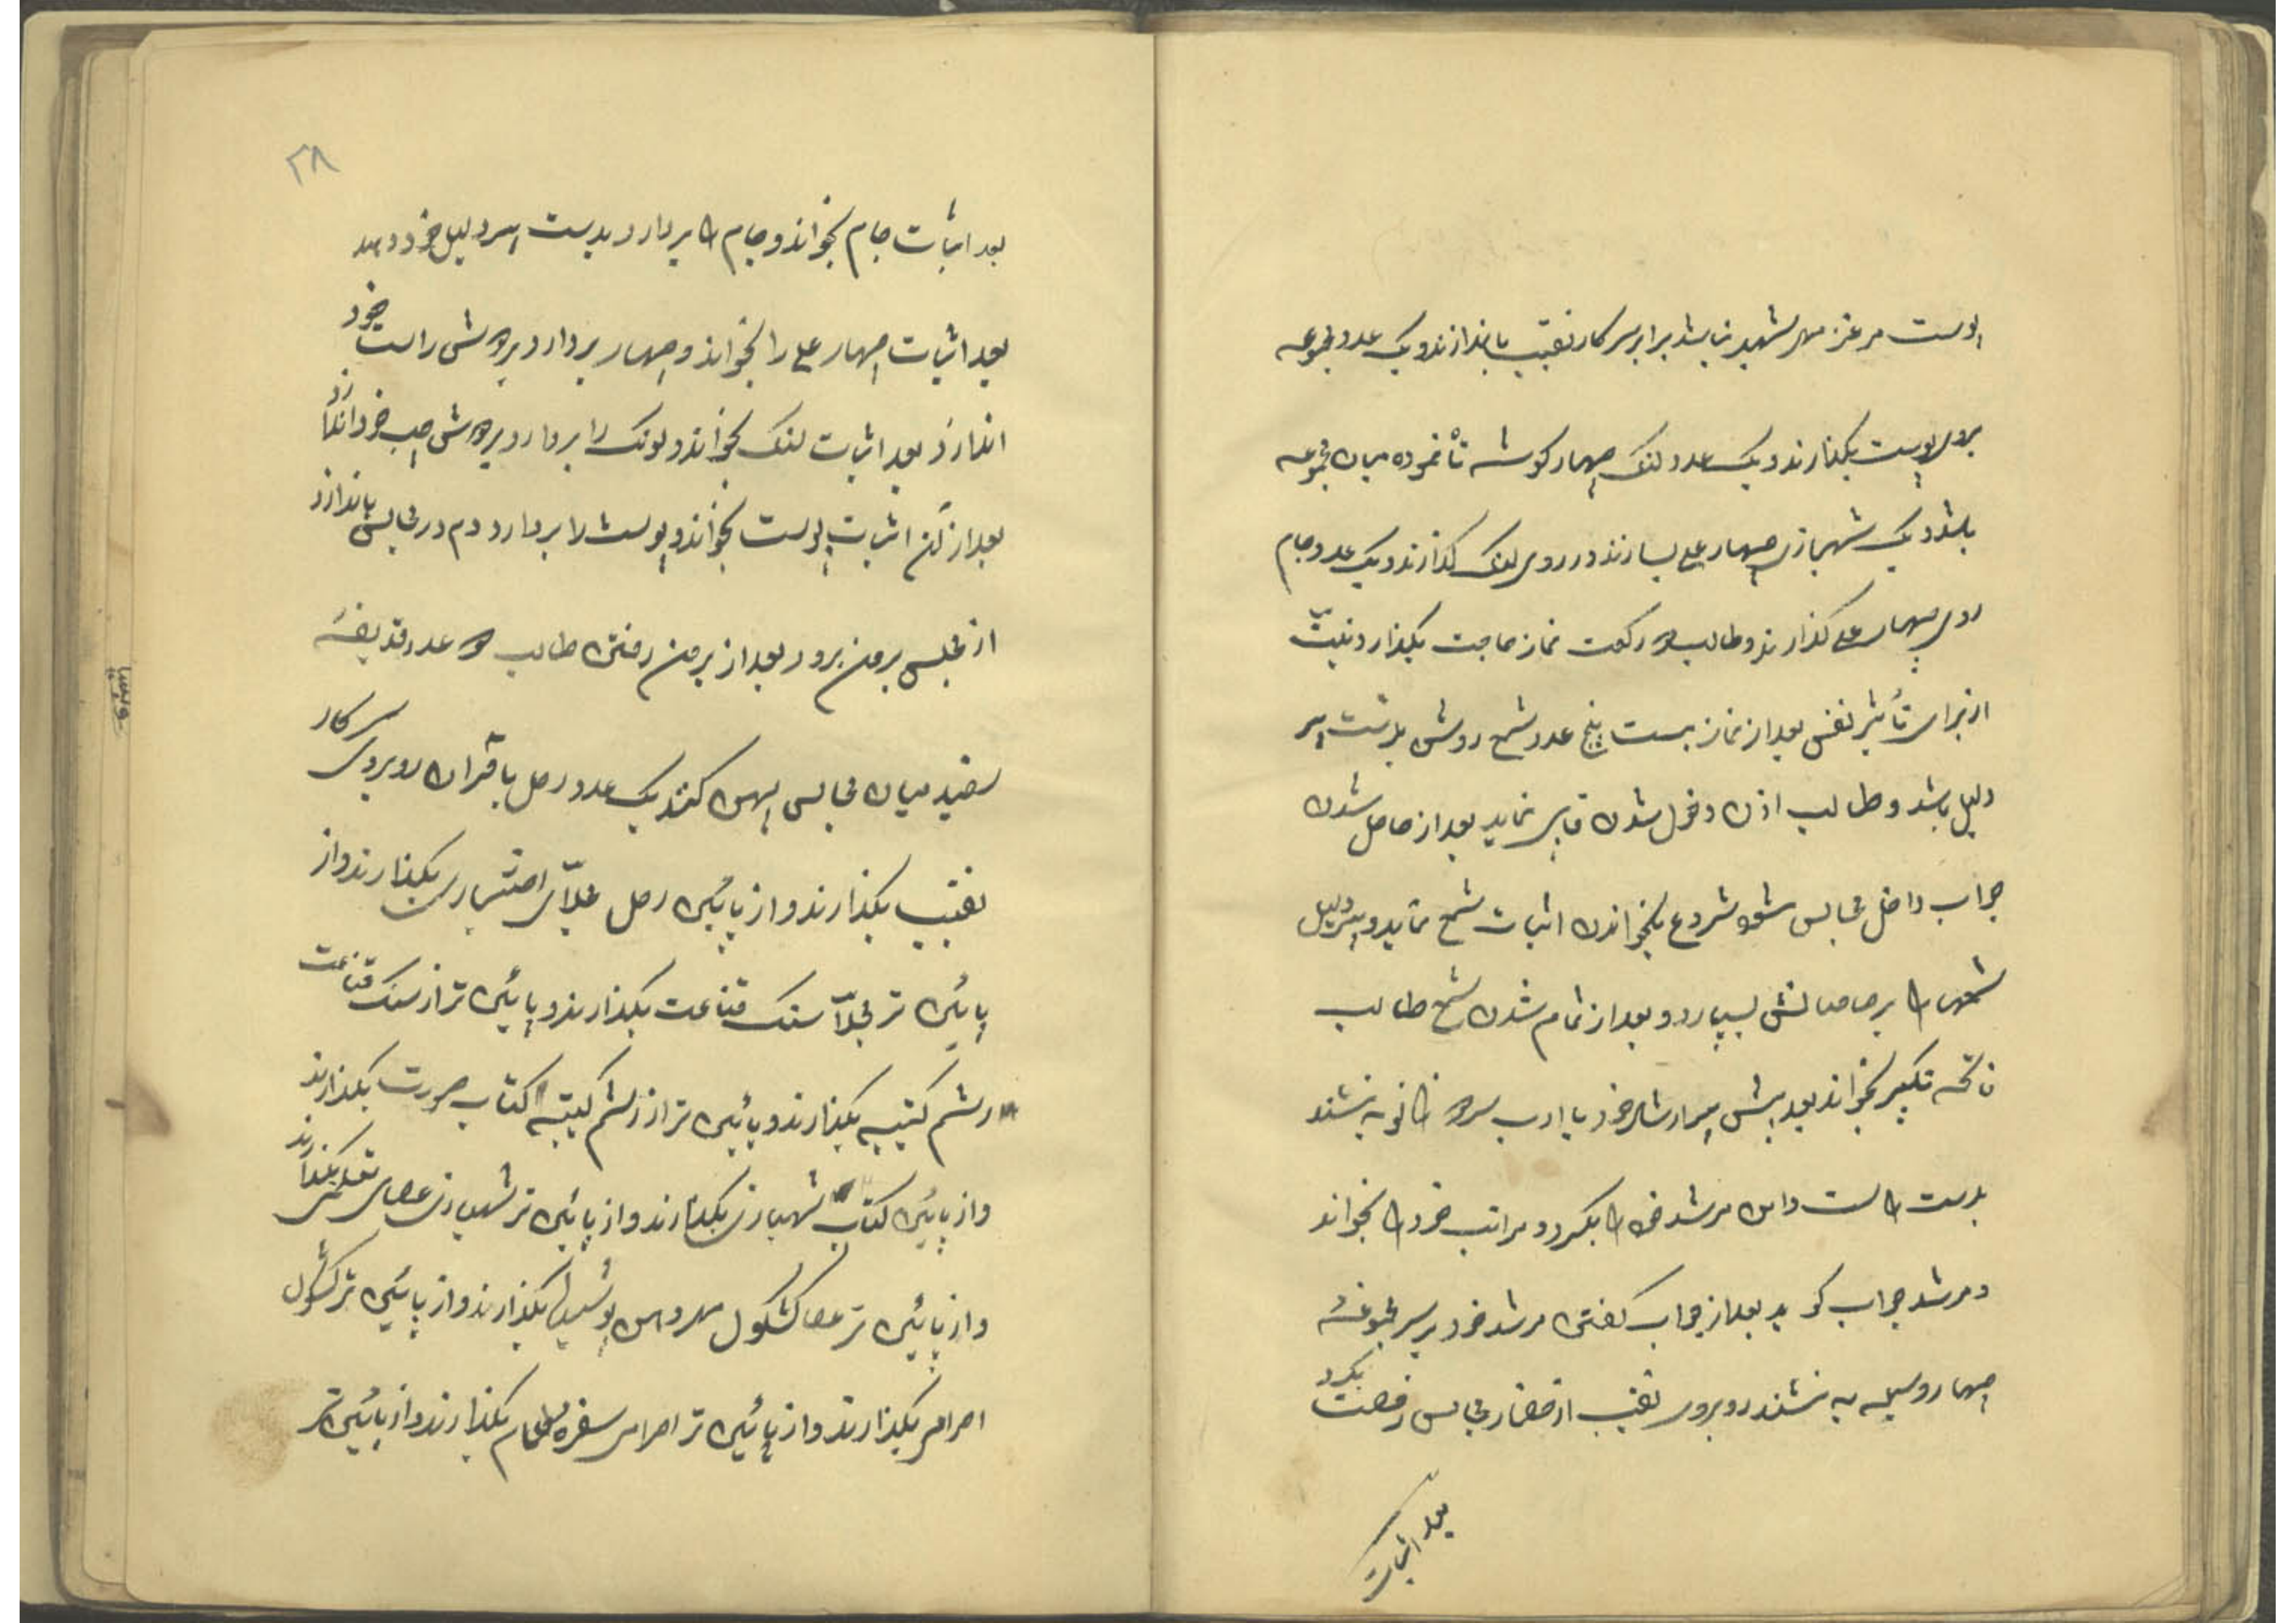 پوست مرغز مهر شهید نباشد برابر سر کار نقیب باندازند و یک عدد مجموعه
بروی پوست بکذارند و یک عدد لنک چهار کوشه تا نموده میان مجموعه
باشد و یک شهبازی چهار علی بسازند در روی لنک کذارند و یک عدد جام
روی چهار علی کذارند و طالب دو رکعت نماز حاجت بکذارد نیت
از برای تأثیر نفس بعد از نماز بیست پنج عدد شمع روشن بدست پیر
دلیل باشد و طالب اذن دخول شدن نماید بعد از حاصل شدن
جواب داخل مجالس شود شروع بخواندن اثبات شمع نماید و پیر دلیل
شمع را بر صاحبانش بسپارد و بعد از تمام شدن شمع طالب
فاتحه تکبیر بخواند بعد پیش پیر ارشاد خود با ادب بدو زانو به نشند
بدست راست دامن مرشد خود را بکیرد و مراتب خود را بخواند
و مرشد جواب کوید بعد از جواب کفتن مرشد خود بر سر مجموعهٔ
چهار وسیله به نشند روبروی نقیب از حضار مجالس رخصت بکیرد
بعد اثبات
۳۸
بعد اثبات جام بخواند و جام را بردارد بدست پیر دلیل خود دهد
بعد اثبات چهار علی را بخواند و چهار بردارد بدوش راست خود
اندازد بعد اثبات لنک بخواند و لونک را بردارد بدوش چپ خود اندازد
بعد از آن اثبات پوست بخواند و پوست را بردارد دم در مجالس باندازد
از مجلس برون برود بعد از برون رفتن طالب دو عدد قدیفهٔ
سفید میان مجالس پهن کنند یک عدد رحل با قران روبروی سر کار
نقیب بکذارند و از پائین رحل مجلّای اختیاری بکذارند و از
پائین تر مجلّا سنک قناعت بکذارند و پائین تر از سنک قناعت
رشم کتیبه بکذارند و پائین تر از رشم کتیبه کتاب صورت بکذارند
و از پائین کتاب شهبازی بکذارند و از پائین تر شهبازی عصای بکذارند
و از پائین تر عصا کشکول بکذارند و از پائین تر کشکول
احرامی بکذارند و از پائین تر احرامی سفره طعام بکذارند و از پائین تر